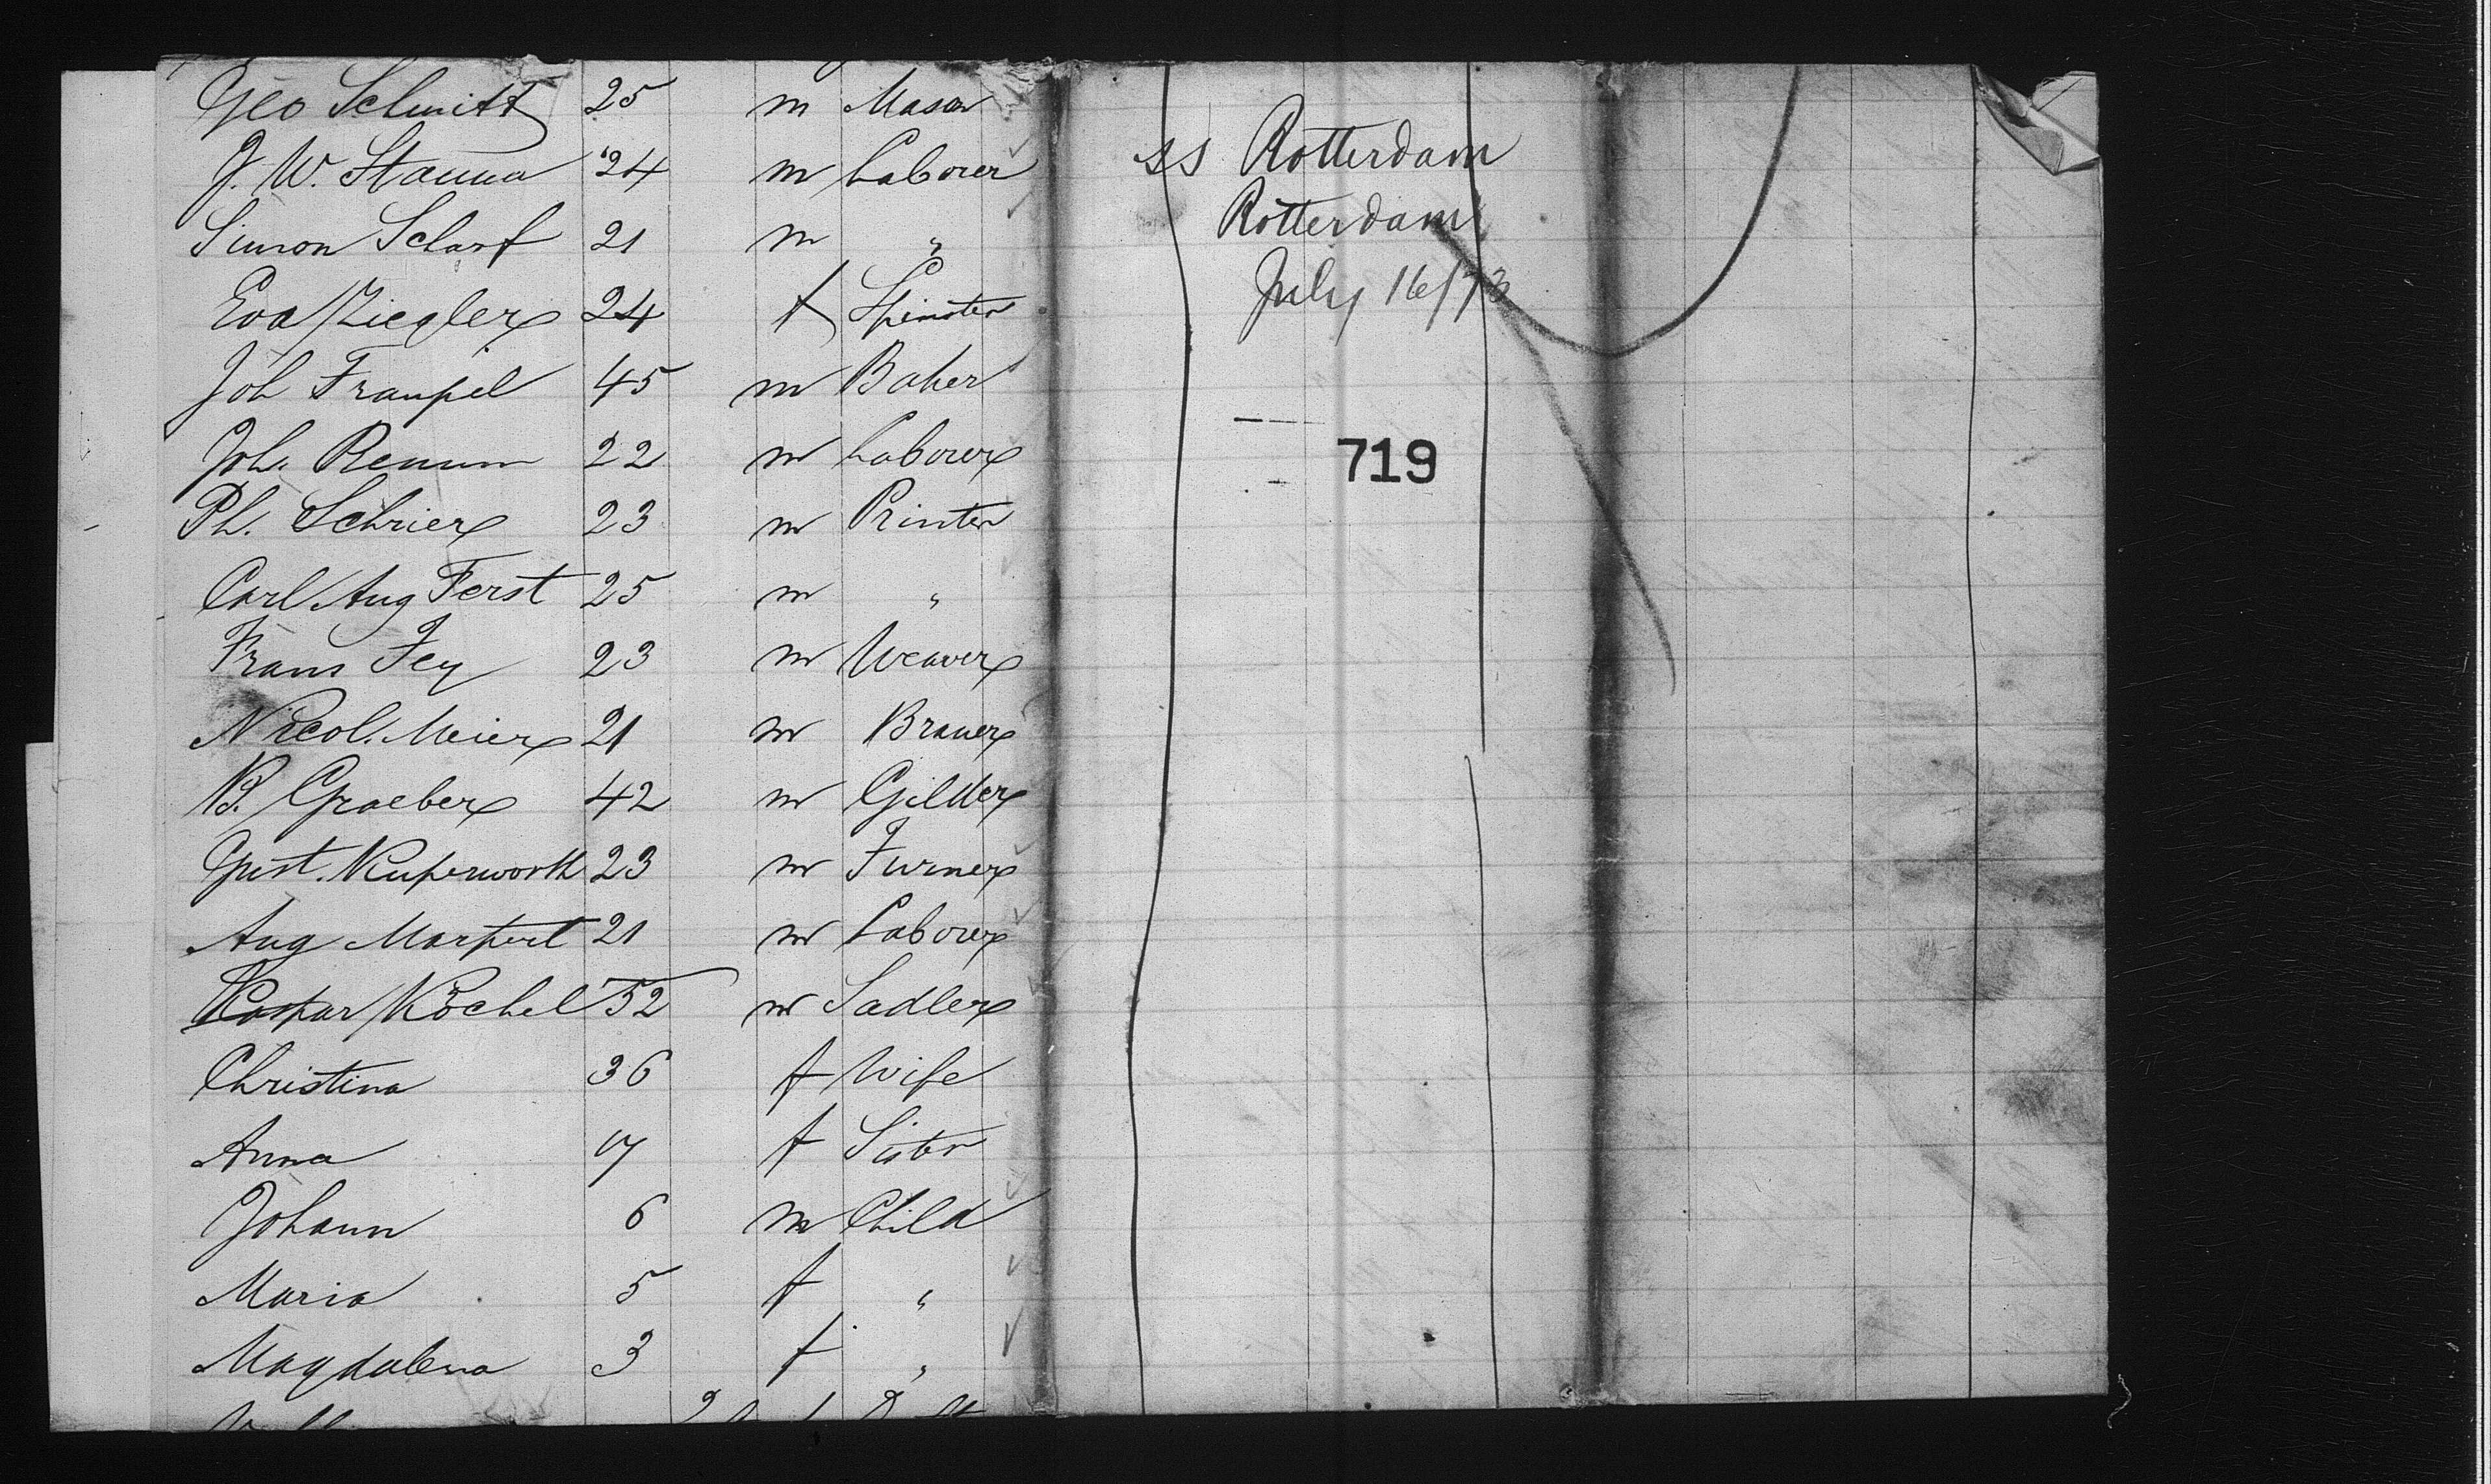 Geo Schmitt 25 m Mason
J. W. Stamm 24 m Laborer
Simon Scharf 21 m "
Eva Ziegler 24 f Spinster
Joh Frampel 45 m Baker
Joh. Remum 22 m Laborer
Ph. Schrier 23 m Printer
Carl Aug Ferst 25 m "
Frans Fey 23 m Weaver
Nicol. Meier 21 m Brauer
B. Graeber 42 m Gilder
Gust. Kuperworth 23 m Turner
Aug Marpert 21 m Laborer
Kaspar Köchel 52 m Sadler
Christina 36 f Wife
Anna 17 f Sister
Johann 6 m Child
Maria 5 f "
Magdalena 3 f "
ss Rotterdam
Rotterdam
July 16/73
719